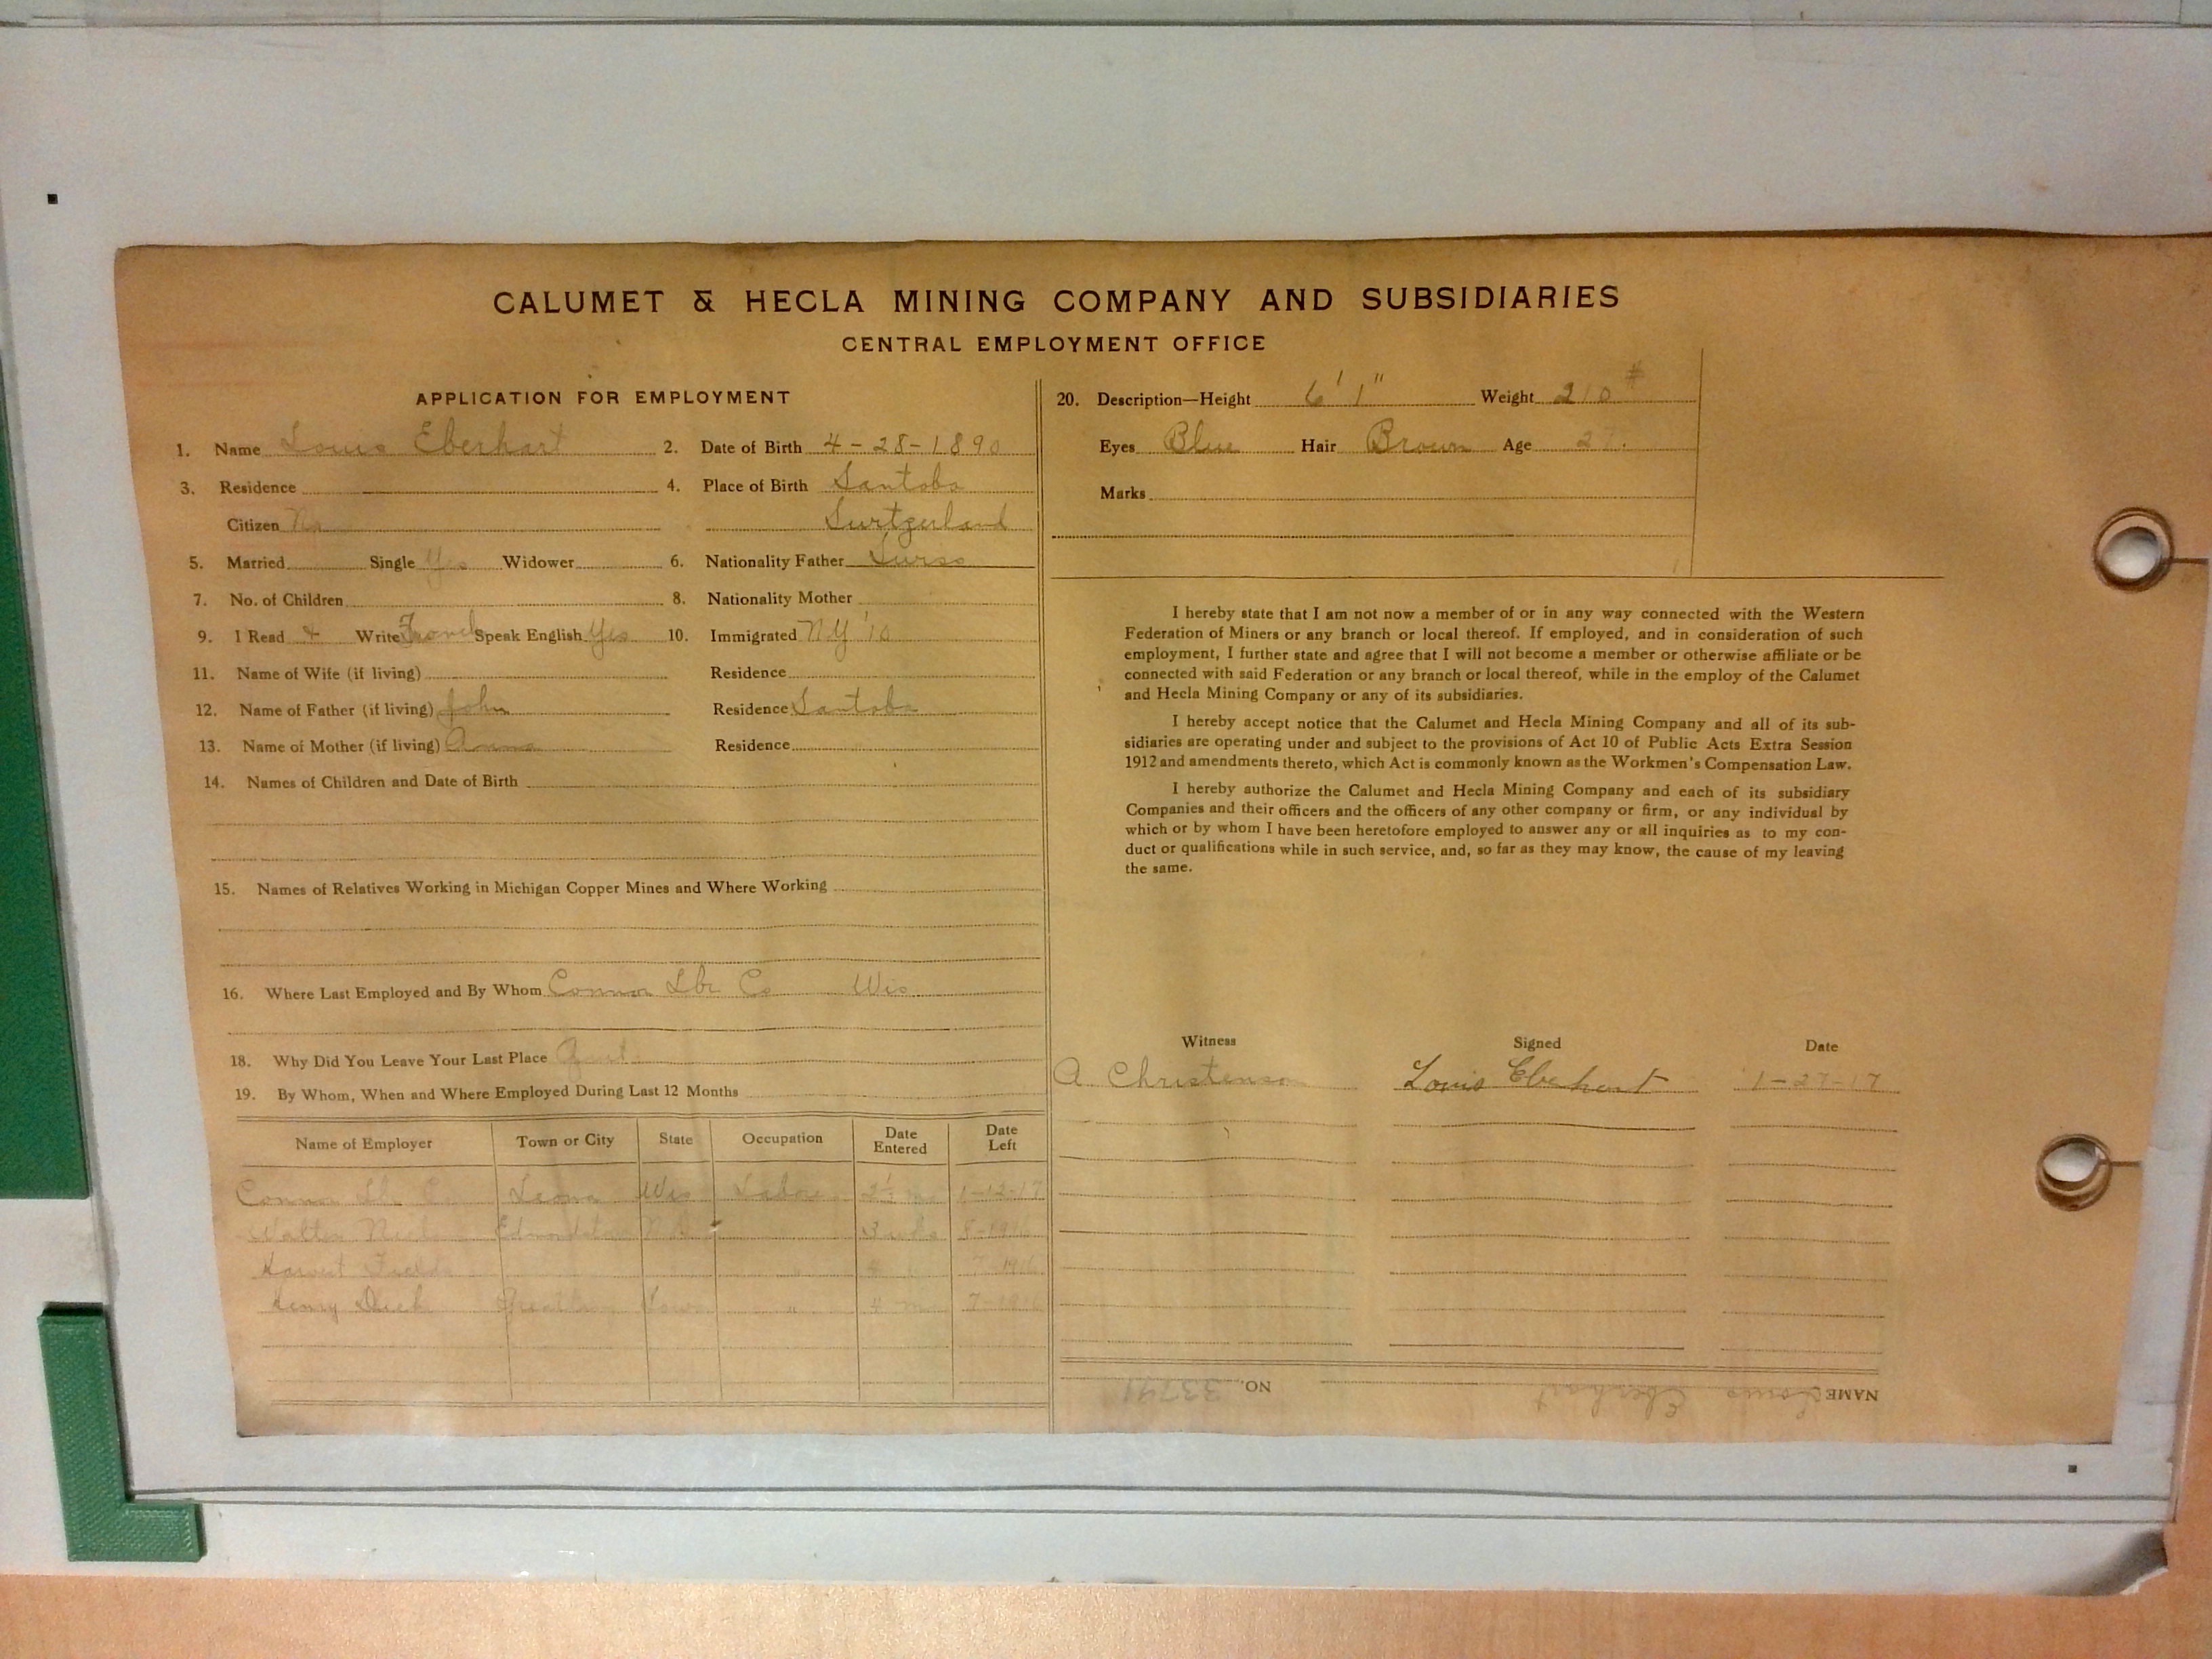 CALUMET & HECLA MINING COMPANY AND SUBSIDIARIES
CENTRAL EMPLOYMENT OFFICE
APPLICATION FOR EMPLOYMENT
1. Name Louis Eberhart 2. Date of Birth 4-28-1890
3. Residence 4. Place of Birth Santoba
Citizen No Switzerland
5. Married Single Yes Widower 6. Nationality Father Swiss
7. No. of Children 8. Nationality Mother
9. I Read & Write Speak English Yes 10. Immigrated NY '10
11. Name of Wife (if living) Residence
12. Name of Father (if living) John Residence Santoba
13. Name of Mother (if living) Anna Residence
14. Names of Children and Date of Birth
15. Names of Relatives Working in Michigan Copper Mines and Where Working
16. Where Last Employed and By Whom Connor Lbr Co Wis
18. Why Did You Leave Your Last Place
19. By Whom, When and Where Employed During Last 12 Months
Name of Employer Town or City State Occupation Date Entered Date Left
Connor Lbr Co Laona Wis Labor 2½ m 1-12-17
Walter 8-1916
Harvest Fields
Henry 4 m
20. Description—Height 6' 1" Weight 210#
Eyes Blue Hair Brown Age 27.
Marks
I hereby state that I am not now a member of or in any way connected with the Western
Federation of Miners or any branch or local thereof. If employed, and in consideration of such
employment, I further state and agree that I will not become a member or otherwise affiliate or be
connected with said Federation or any branch or local thereof, while in the employ of the Calumet
and Hecla Mining Company or any of its subsidiaries.
I hereby accept notice that the Calumet and Hecla Mining Company and all of its sub-
sidiaries are operating under and subject to the provisions of Act 10 of Public Acts Extra Session
1912 and amendments thereto, which Act is commonly known as the Workmen's Compensation Law.
I hereby authorize the Calumet and Hecla Mining Company and each of its subsidiary
Companies and their officers and the officers of any other company or firm, or any individual by
which or by whom I have been heretofore employed to answer any or all inquiries as to my con-
duct or qualifications while in such service, and, so far as they may know, the cause of my leaving
the same.
Witness Signed Date
A. Christenson Louis Eberhart 1-27-17
NAME Louis Eberhart NO. 33791